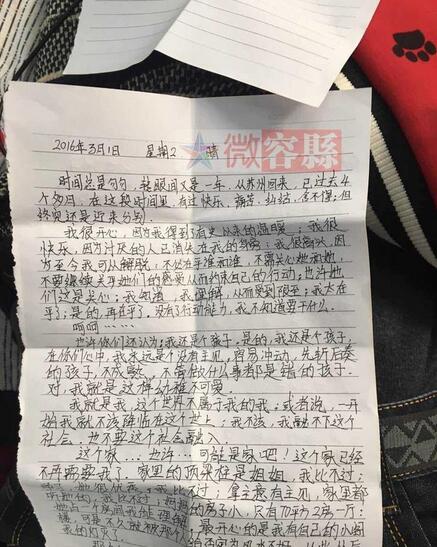 微容縣
2016年3月1日 星期2 晴
时间总是匆匆，转眼间又是一年，从苏州回来，已过去4
个多月，在这段时间里，有过快乐、痛苦、纠结、舍不得；但
终究还是迎来分别。
我很开心，因为我得到了有史以来的温暖；我很
快乐，因为讨厌的人已消失在我的身旁；我很高兴，因
为至今我可以解脱，不必在乎谁和谁，不需关心她和她，
不要继续关乎她们的感受从而约束自己的行动，也许她
们这是关心；我知道，我理解，从而受到限至；我太在
乎了；是的，再在乎了，没有了行动能力，我不知道要干什么。
呵呵……
也许你们还认为：我还是个孩子，是的，我还是个孩子，
在你们心中，我永远是个没有主见，容易冲动，先斩后奏
的孩子，不成熟，不管做什么事都是错的孩子。
对，我就是这样幼稚不可爱。
我就是我，这个世界不属于我的我；或者说，一开
始我就不该降临在这个世上；我不该，我融不下这个
社会，也不要这个社会融入。
这个家…也许…可能是家吧！这个家已经
不再需要我了，家里的顶梁柱是姐姐，我比不过；
她很优秀，我比不过；拿主意有主见，家里都
听她的，我比不过；
房子小，只有70平方2房一厅；
她占一个房间
最开心的是我有自己的小阁
我的灯灭了